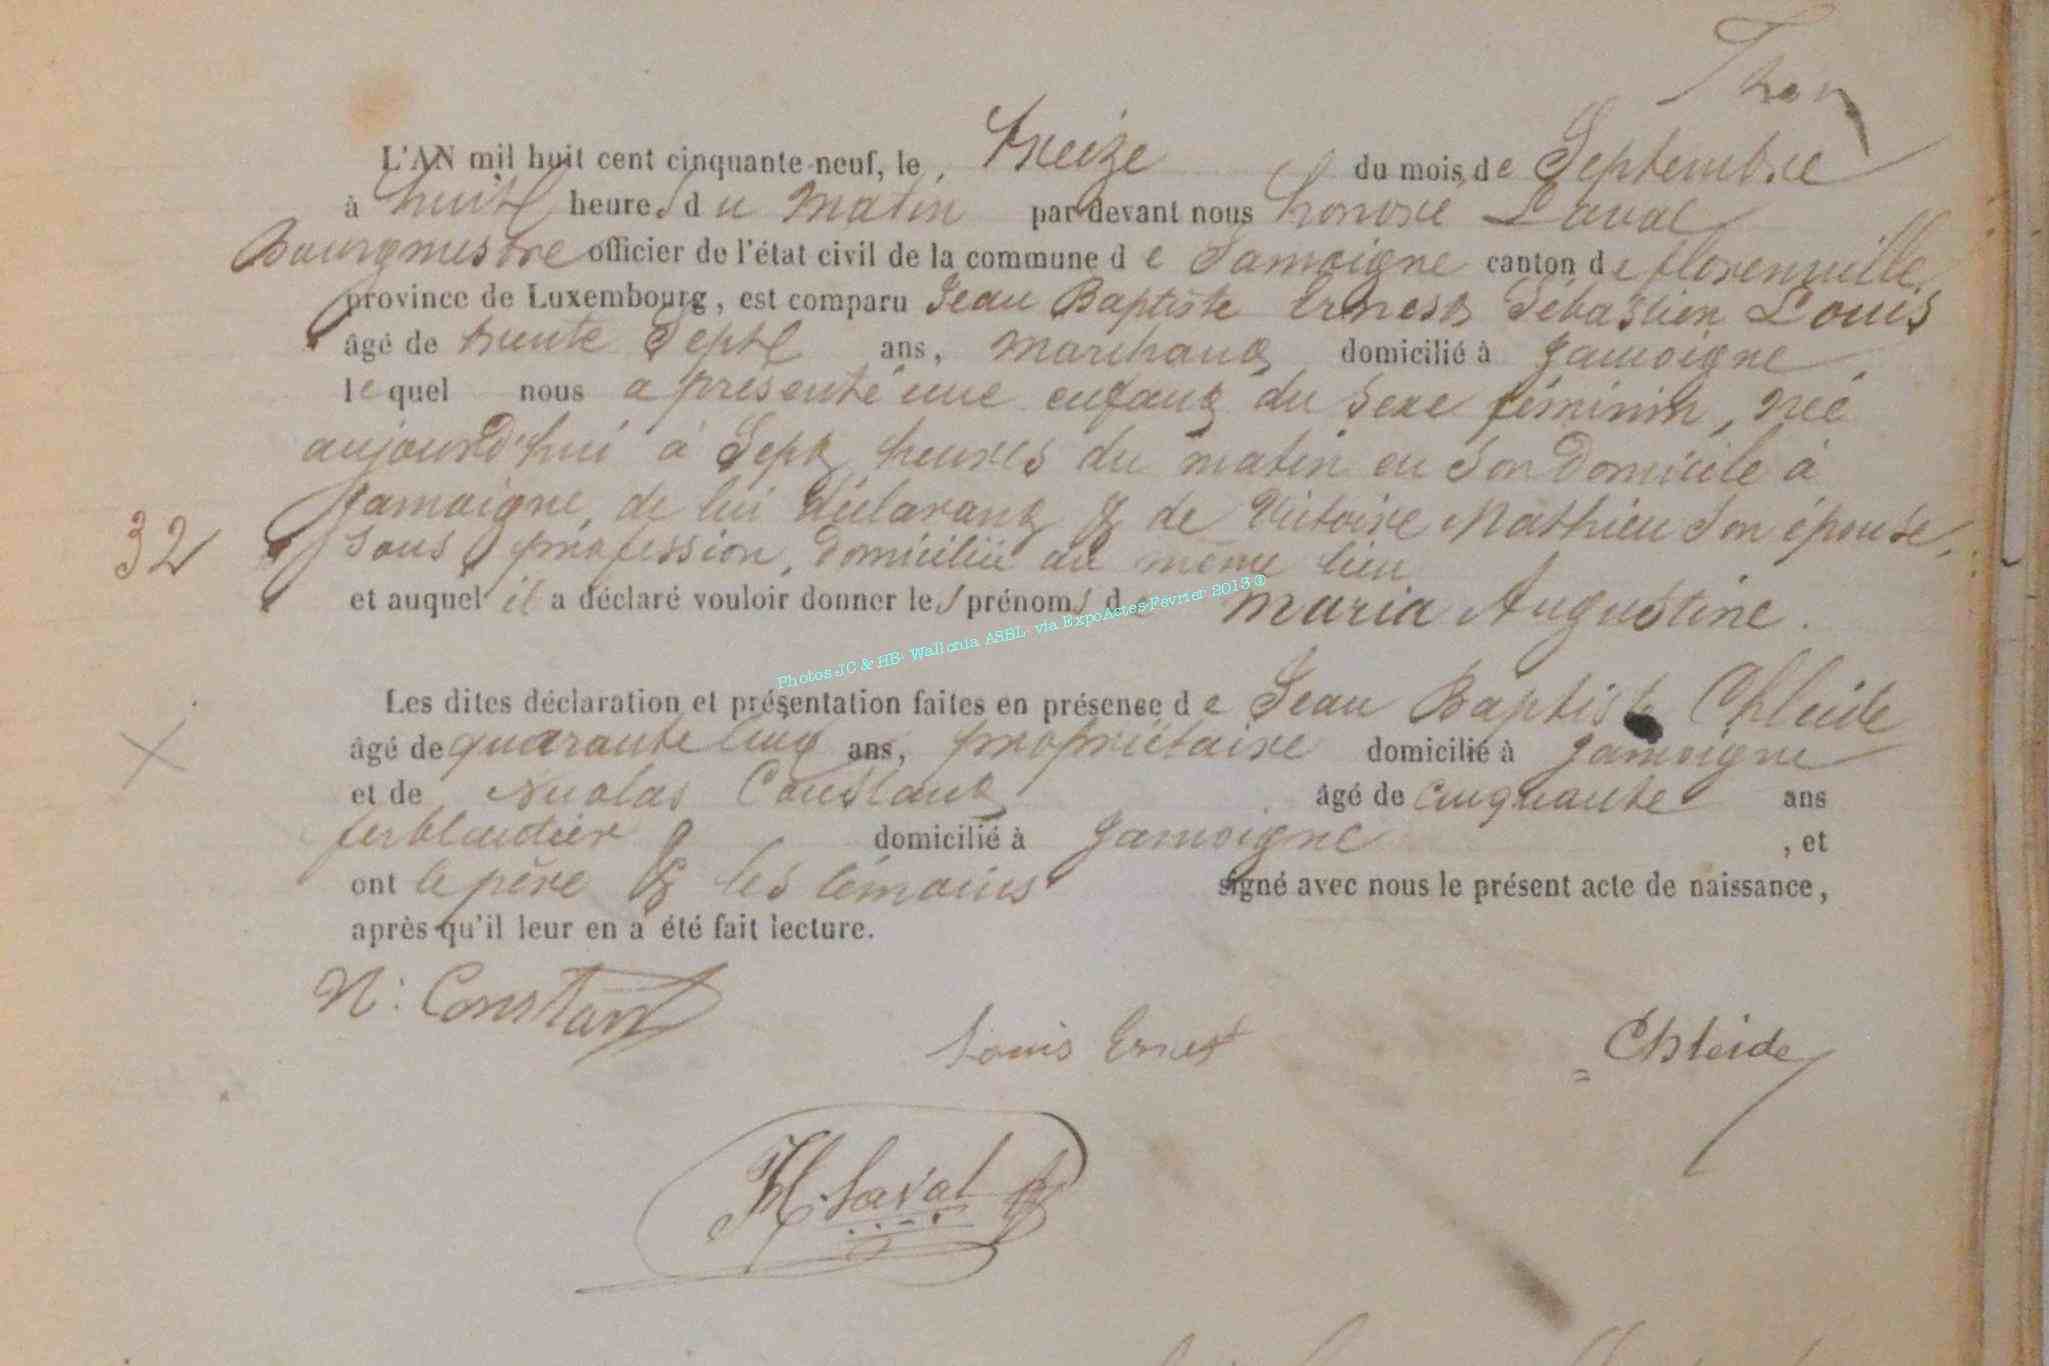 L'AN mil huit cent cinquante-neuf, le treize du mois de Septembre
à huit heures du matin par devant nous honoré Laval
Bourgmestre officier de l'état civil de la commune de Jamoigne canton de florenville,
province de Luxembourg, est comparu Jean Baptiste Ernest Sébastien Louis
âgé de trente Sept ans, marchand domicilié à Jamoigne,
lequel nous a présenté une enfant du sexe féminin, née
aujourd'hui à Sept heures du matin en son domicile à
Jamoigne, de lui déclarant & de Victoire Mathieu son épouse,
32 sans profession, domiciliée au même lieu
et auquel il a déclaré vouloir donner les prénoms de Maria Augustine.
Photos JC & HB- Wallonia ASBL- via ExpoActes Février 2013 ©
Les dites déclaration et présentation faites en présence de Jean Baptiste Chleide
âgé de quarante cinq ans, propriétaire domicilié à Jamoigne
et de Nicolas Constant âgé de cinquante ans
ferblantier domicilié à Jamoigne , et
ont le père & les témoins signé avec nous le présent acte de naissance,
après qu'il leur en a été fait lecture.
N: Constant
Louis Ernest Chleide
H. Laval